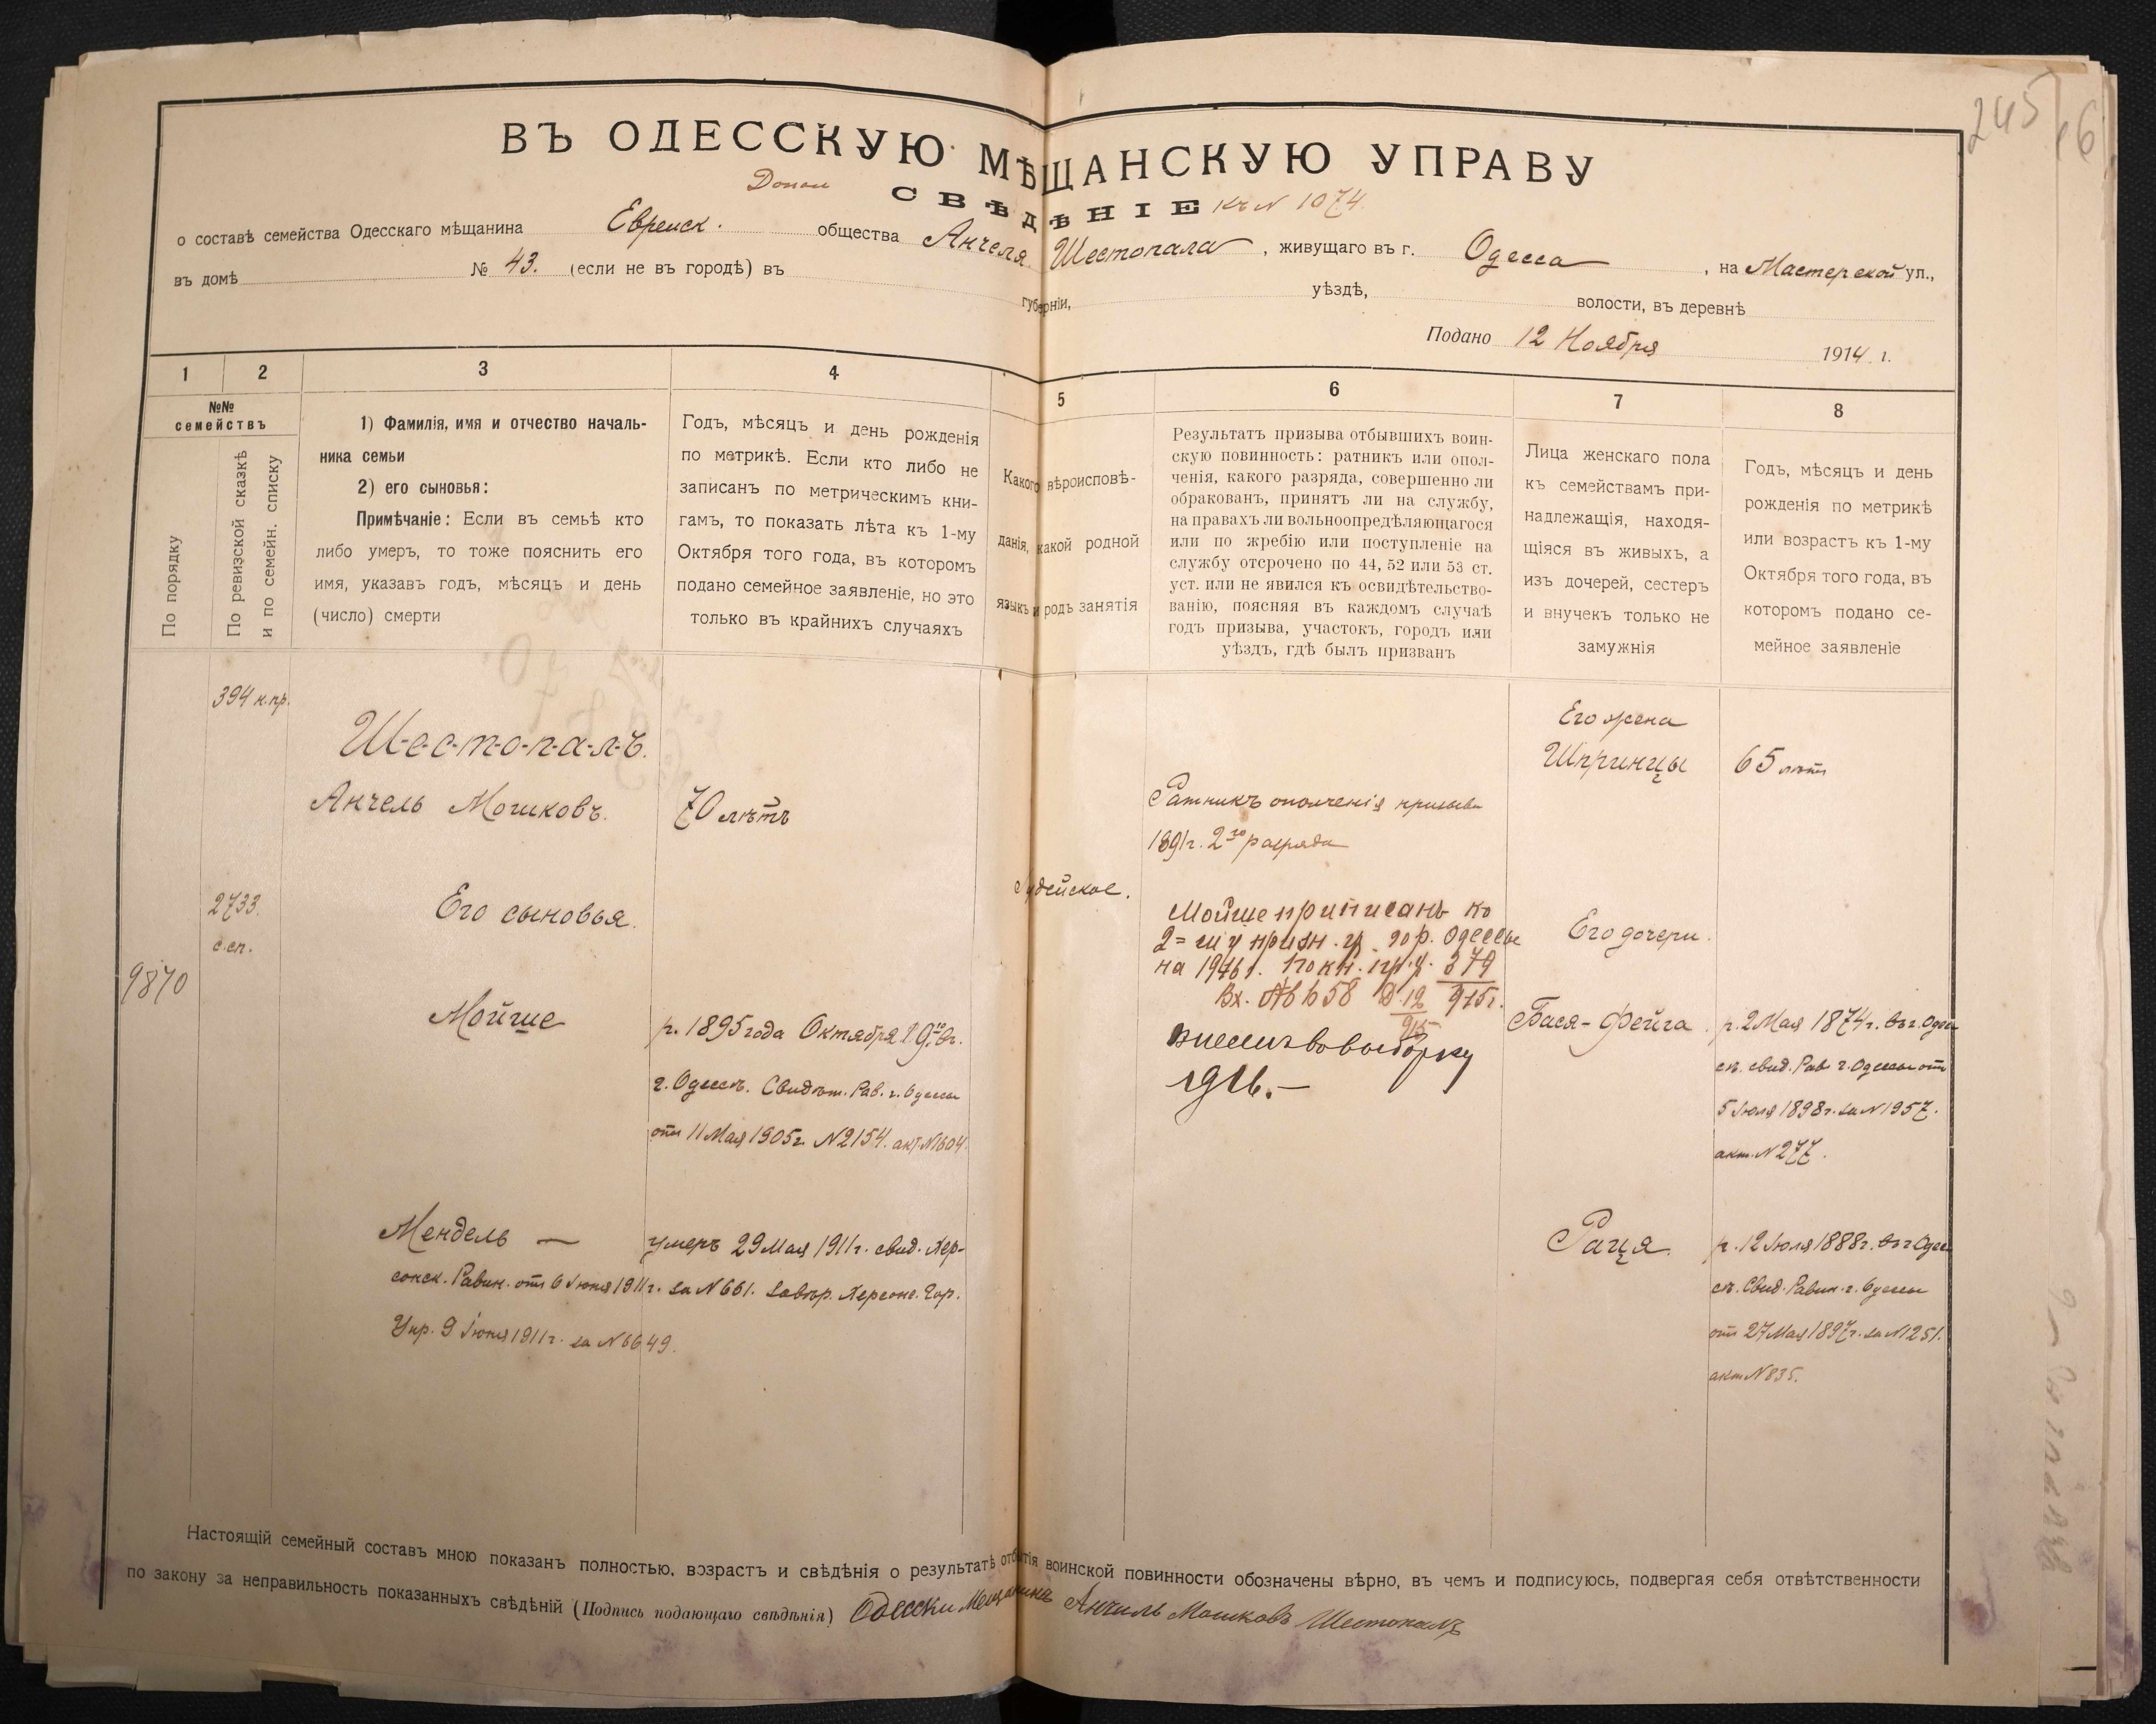 245
ВЪ ОДЕССКУЮ МѢЩАНСКУЮ УПРАВУ
СВѢДѢНІЕ къ N 1074
о составѣ семейства Одесскаго мѣщанина Еврейск. общества Анчеля Шестопала, живущаго въ г. Одесса, на Мастерской ул.,
въ домѣ № 43. (если не въ городѣ) въ губерніи, уѣздѣ, волости, въ деревнѣ
Подано 12 Ноября 1914 г.
1
2
3
4
5
6
7
8
№№
семействъ
По порядку
По ревизской сказкѣ
и по семейн. списку
1) Фамилія, имя и отчество началь-
ника семьи
2) его сыновья:
Примѣчаніе: Если въ семьѣ кто
либо умеръ, то тоже пояснить его
имя, указавъ годъ, мѣсяцъ и день
(число) смерти
Годъ, мѣсяцъ и день рожденія
по метрикѣ. Если кто либо не
записанъ по метрическимъ кни-
гамъ, то показать лѣта къ 1-му
Октября того года, въ которомъ
подано семейное заявленіе, но это
только въ крайнихъ случаяхъ
Какого вѣроисповѣ-
данія, какой родной
языкъ и родъ занятія
Результатъ призыва отбывшихъ воин-
скую повинность: ратникъ или опол-
ченія, какого разряда, совершенно ли
обракованъ, принятъ ли на службу,
на правахъ ли вольноопредѣляющагося
или по жребію или поступленіе на
службу отсрочено по 44, 52 или 53 ст.
уст. или не явился къ освидѣтельство-
ванію, поясняя въ каждомъ случаѣ
годъ призыва, участокъ, городъ или
уѣздъ, гдѣ былъ призванъ
Лица женскаго пола
къ семействамъ при-
надлежащія, находя-
щіяся въ живыхъ, а
изъ дочерей, сестеръ
и внучекъ только не
замужнія
Годъ, мѣсяцъ и день
рожденія по метрикѣ
или возрастъ къ 1-му
Октября того года, въ
которомъ подано се-
мейное заявленіе
394 н.пр.
Ш-е-с-т-о-п-а-л-ъ.
Анчель Мошковъ. 70 лѣтъ
Ратникъ ополченія призыва
1891г. 2го разряда
Его жена
Шпринцы 65 лѣтъ
2733.
с.сп.
9870
Его сыновья.
Іудейское.
Мойше приписанъ ко
2=му призн. уч. гор. Одессы
на 1916г. по кн. пр. у. 379
Вх. № 658
внесенъ въ выборку
1916.–
Его дочери.
Мойше
р. 1895 года Октября 19го въ
г. Одессѣ. Свидѣт. Рав. г. Одессы
отъ 11 Мая 1905г. N2154. акт. N1604.
Бася-Фейга
р. 2 Мая 1874г. въ г. Одес
сѣ. свид. Рав г. Одессы отъ
5 Іюля 1898г. за N1957.
акт. N277.
Мендель — умеръ 29 Мая 1911г. свид. Хер-
сонск. Равин. отъ 6 Іюня 1911г. за N661. завѣр. Херсонс. Гор.
Упр. 9 Іюня 1911г. за N6649.
Раця.
р. 12 Іюля 1888г. въ г. Одес
сѣ. Свид. Равин. г. Одессы
отъ 27 Мая 1897г. за N1251.
акт N835.
Настоящій семейный составъ мною показанъ полностью, возрастъ и свѣдѣнія о результатѣ отбытія воинской повинности обозначены вѣрно, въ чемъ и подписуюсь, подвергая себя отвѣтственности
по закону за неправильность показанныхъ свѣдѣній (Подпись подающаго свѣдѣнія) Одесски Мещанинъ Анчиль Мошковъ Шестопалъ